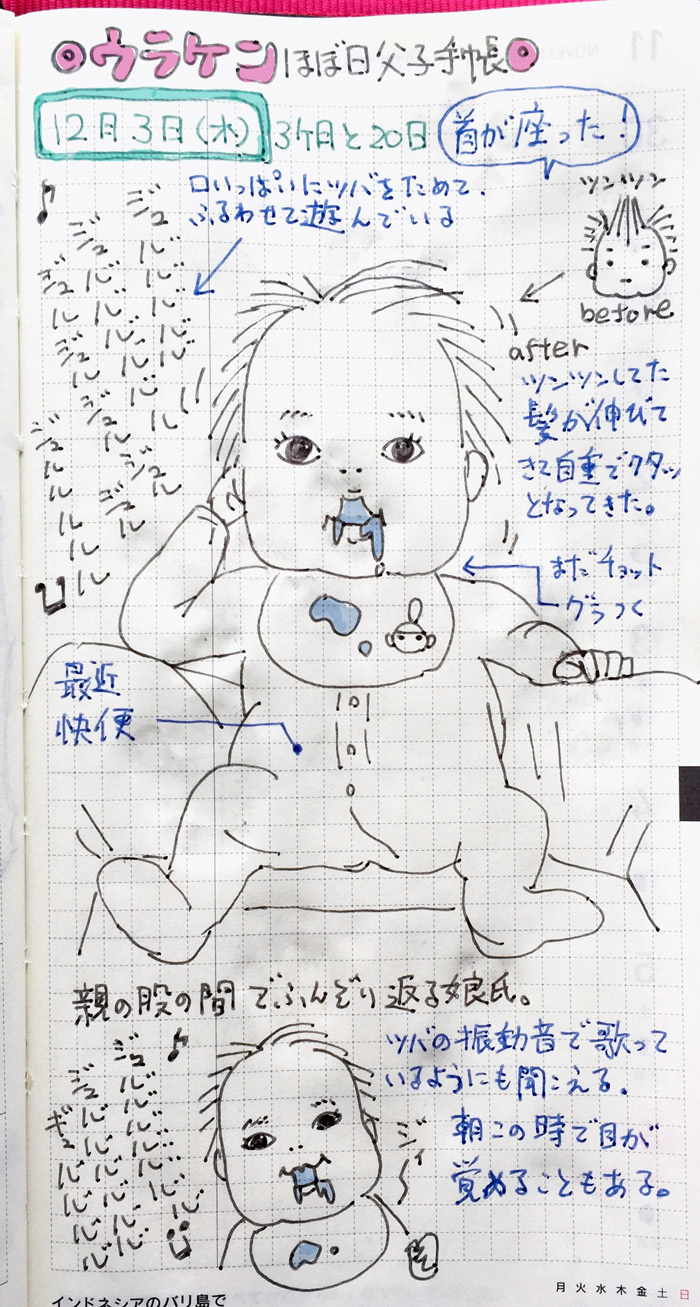 ウラケン ほぼ日父子手帳
12月3日(水) 3ヶ月と20日 首が座った!
口いっぱいにツバをためて、
ふるわせて遊んでいる
ツンツン
before
after
ツンツンしてた
髪が伸びて
きて自重でクタッ
となってきた。
まだチョット
グラつく
♪
ジュルルルルル
ジュルルル
ジュルル
ジュルルルルル
最近
快便
親の股の間でふんぞり返る娘氏。
ツバの振動音で歌って
いるようにも聞こえる。
朝この時で目が
覚めることもある。
ジィー
インドネシアのバリ島で
月火水木金土日